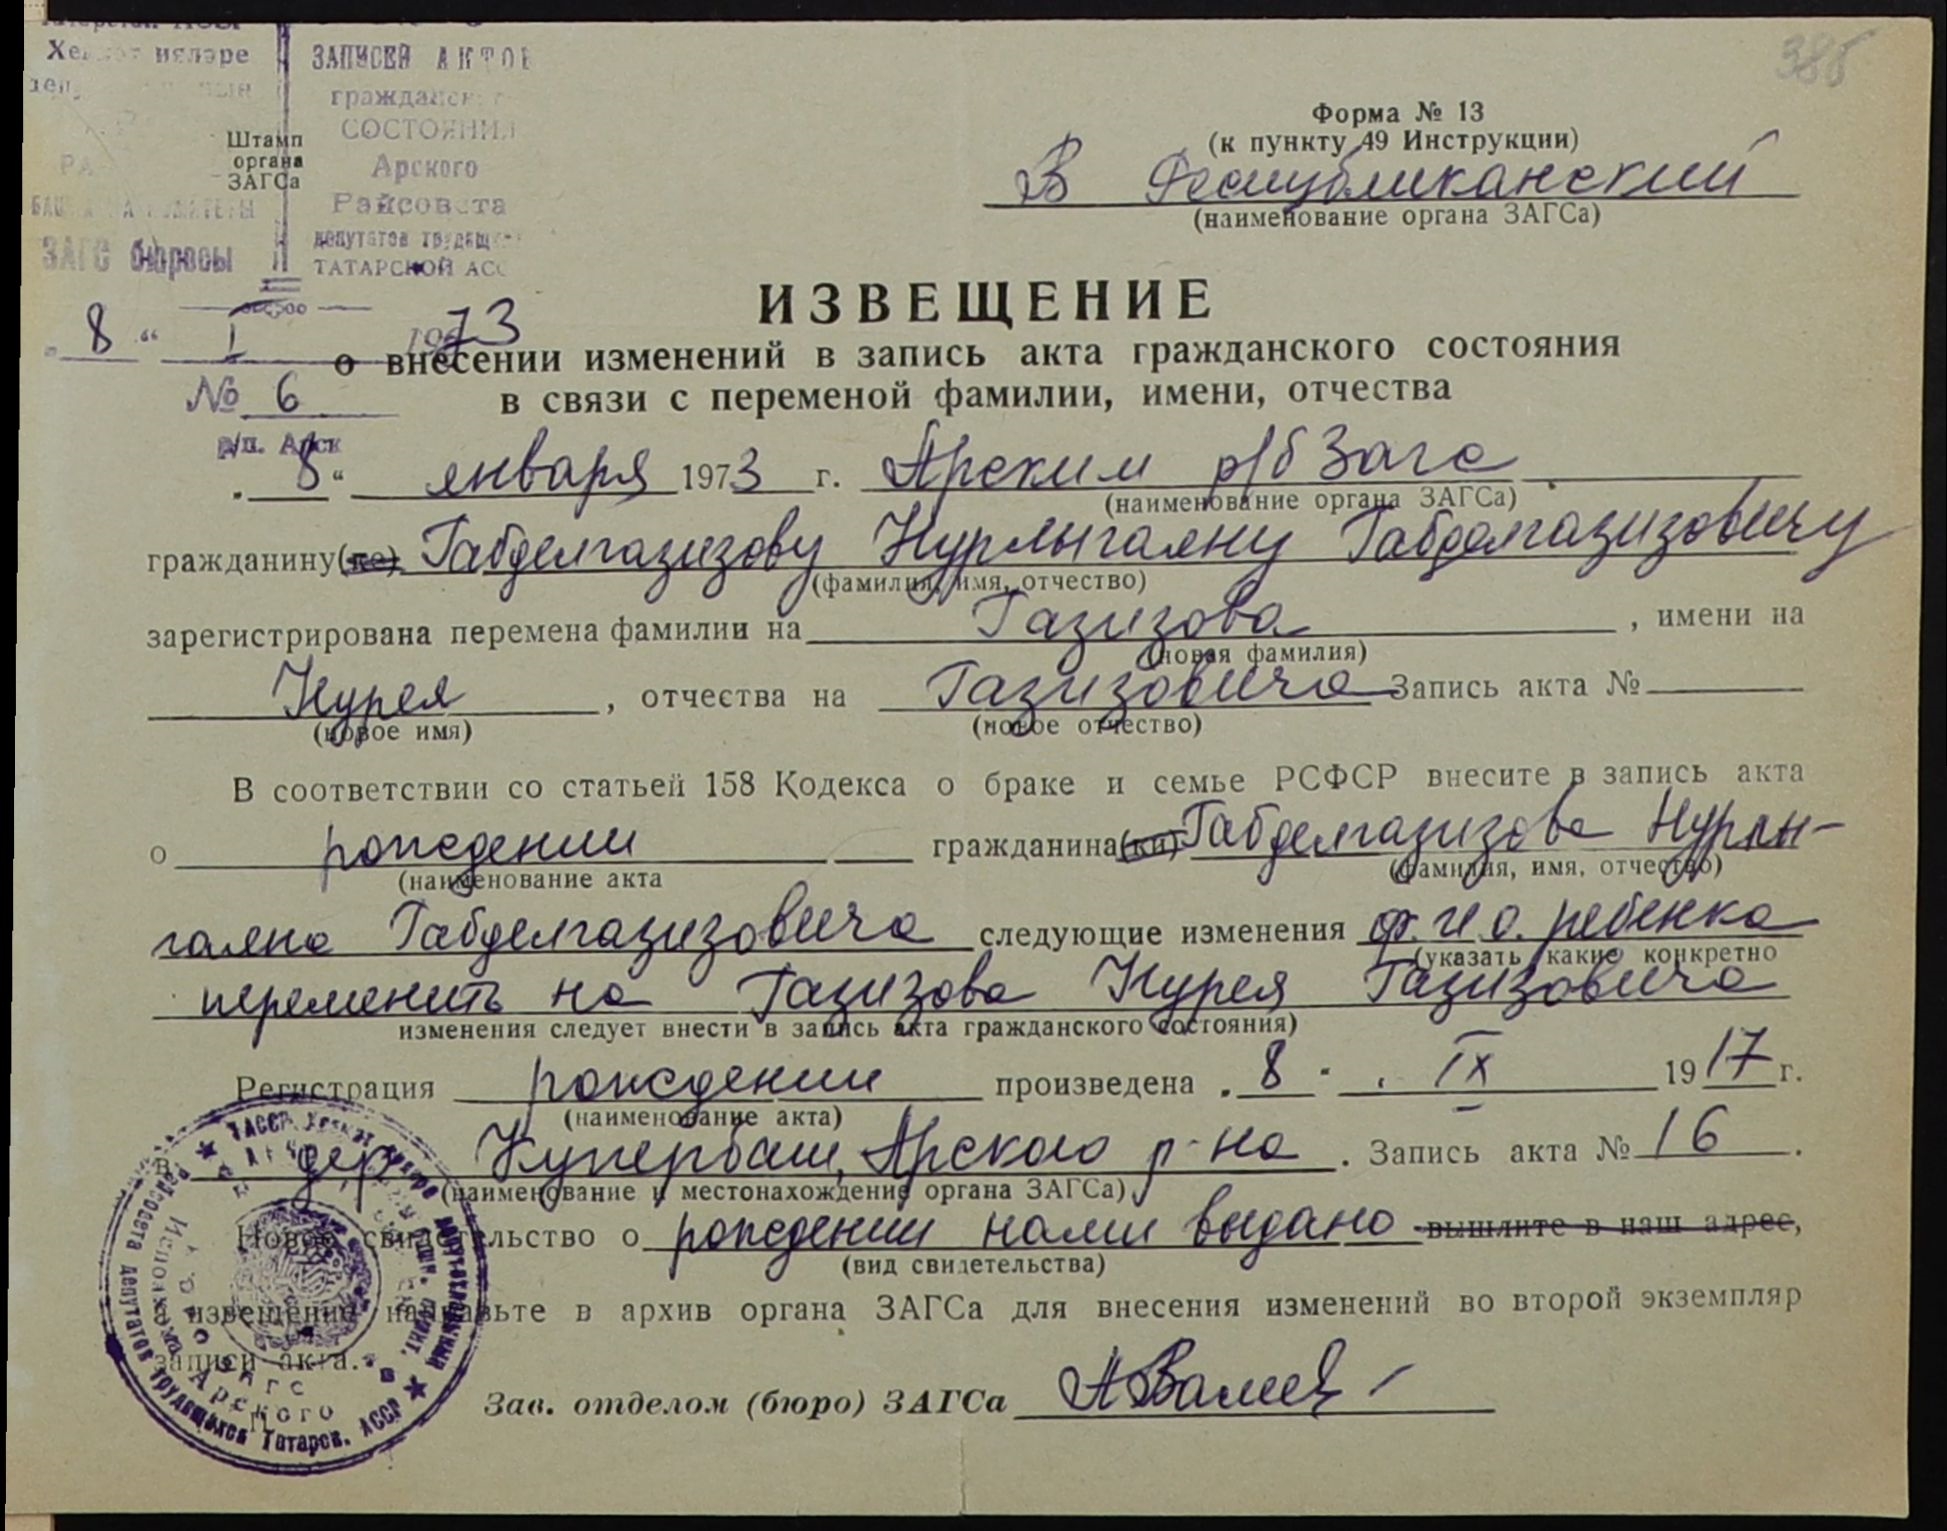 386
ЗАПИСЕЙ АКТОВ
СОСТОЯНИЯ
Арского
Райсовета
депутатов трудящ
ТАТАРСКОЙ АСС
ЗАГС бюросы
Штамп
органа
ЗАГСа
Форма № 13
(к пункту 49 Инструкции)
В Республиканский
(наименование органа ЗАГСа)
ИЗВЕЩЕНИЕ
„8“ I 1973
о внесении изменений в запись акта гражданского состояния
№ 6
в связи с переменой фамилии, имени, отчества
р/п. Арск
„8“ января 1973 г. Арским р/б Загс
(наименование органа ЗАГСа)
гражданину(ке) Габделгазизову Нурлыгаяну Габделгазизовичу
(фамилия, имя, отчество)
зарегистрирована перемена фамилии на Газизова, имени на
(новая фамилия)
Нурея, отчества на Газизовича Запись акта №
(новое имя) (новое отчество)
В соответствии со статьей 158 Кодекса о браке и семье РСФСР внесите в запись акта
о рождении гражданина(ки) Габделгазизова Нурлы-
(наименование акта (фамилия, имя, отчество)
гаяна Габделгазизовича следующие изменения ф.и.о. ребенка
(указать какие конкретно
переменить на Газизова Нурея Газизовича
изменения следует внести в запись акта гражданского состояния)
Регистрация рождении произведена „8“ IX 1917 г.
(наименование акта)
в дер. Купербаш, Арского р-на. Запись акта № 16.
(наименование и местонахождение органа ЗАГСа)
Новое свидетельство о рождении нами выдано вышлите в наш адрес,
(вид свидетельства)
извещение направьте в архив органа ЗАГСа для внесения изменений во второй экземпляр
записи акта.
Зав. отделом (бюро) ЗАГСа АВалиев